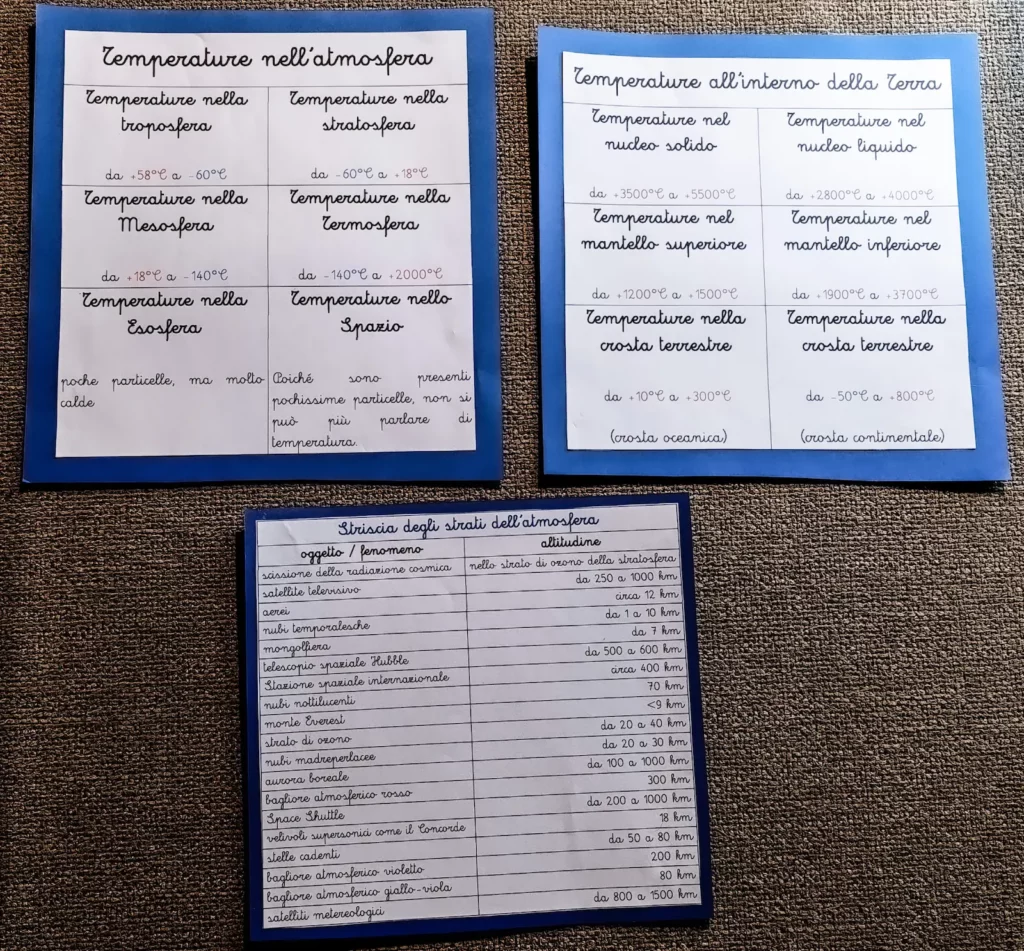 Temperature nell'atmosfera
Temperature nella
troposfera
da +58°C a -60°C
Temperature nella
stratosfera
da -60°C a +18°C
Temperature nella
Mesosfera
da +18°C a -140°C
Temperature nella
Termosfera
da -140°C a +2000°C
Temperature nella
Esosfera
poche particelle, ma molto
calde
Temperature nello
Spazio
Poiché sono presenti
pochissime particelle, non si
può più parlare di
temperatura.
Temperature all'interno della Terra
Temperature nel
nucleo solido
da +3500°C a +5500°C
Temperature nel
nucleo liquido
da +2800°C a +4000°C
Temperature nel
mantello superiore
da +1200°C a +1500°C
Temperature nel
mantello inferiore
da +1900°C a +3700°C
Temperature nella
crosta terrestre
da +10°C a +300°C
(crosta oceanica)
Temperature nella
crosta terrestre
da -50°C a +800°C
(crosta continentale)
Striscia degli strati dell'atmosfera
oggetto / fenomeno altitudine
scissione della radiazione cosmica nello strato di ozono della stratosfera
satellite televisivo da 250 a 1000 km
aerei circa 12 km
nubi temporalesche da 1 a 10 km
mongolfiera da 7 km
telescopio spaziale Hubble da 500 a 600 km
Stazione spaziale internazionale circa 400 km
nubi nottilucenti 70 km
monte Everest <9 km
strato di ozono da 20 a 40 km
nubi madreperlacee da 20 a 30 km
aurora boreale da 100 a 1000 km
bagliore atmosferico rosso 300 km
Space Shuttle da 200 a 1000 km
velivoli supersonici come il Concorde 18 km
stelle cadenti da 50 a 80 km
bagliore atmosferico violetto 200 km
bagliore atmosferico giallo-viola 80 km
satelliti metereologici da 800 a 1500 km